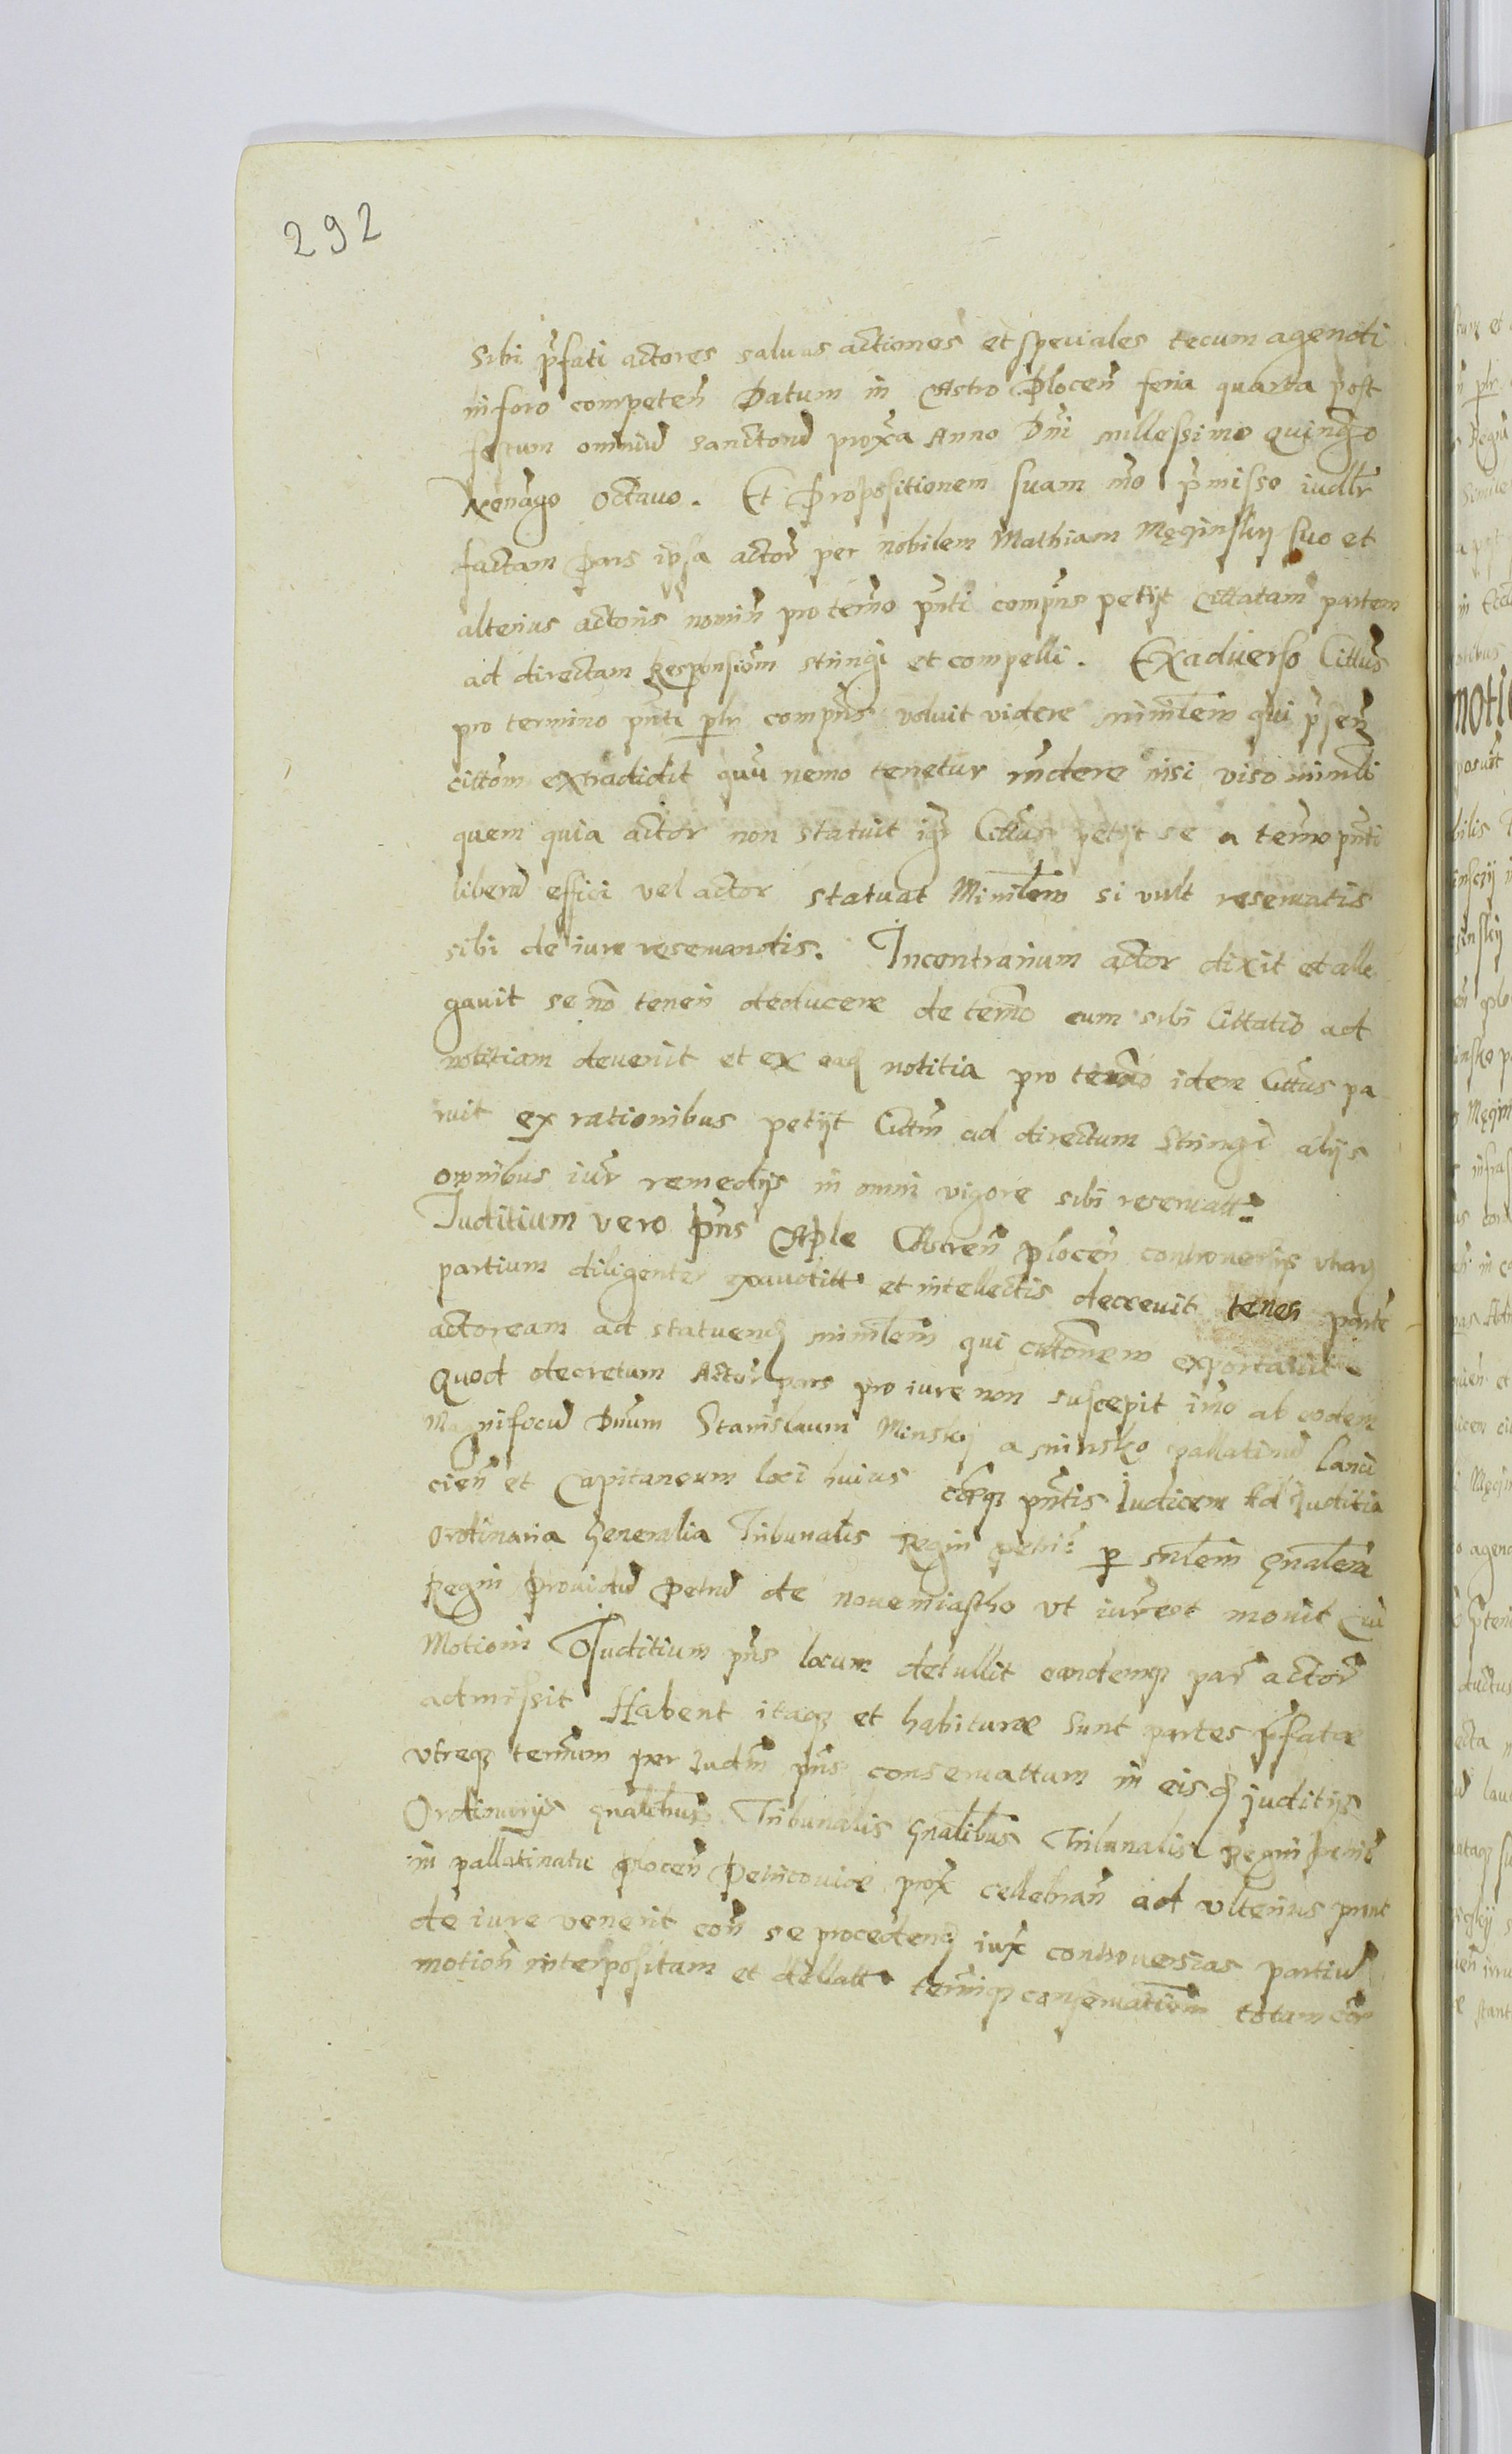 292
Sibi p̃fati actores saluas actiones et speciales tecum agendi
in foro competeñ Datum in Castro Plocen̄ feria quarta post
festum omniū sanctorū proxīa Anno Dn̄i millessimo quingo
Nonāgo octauo. Et Propositionem suam m̄o p̃misso iudlr̄
factam Pars ipsa actor̄ per nobilem Mathiam Męcinskij suo et
alterius actoris nomiñ pro terño pñti compñs petijt Cittatam partem
ad directam Responsiom̄ stringi et compelli. Ex aduerso Cittus
pro termino pñti plr̄ compñs voluit videre minr̄lem qui p̃señ
cittom̄ extradidit quū nemo tenetur rñdere nisi viso minrli
quem quia actor non statuit iḡ Cittus petijt se a terño pñti
liberū effici vel actor statuat Minr̄lem si vult reseruatis
sibi de iure reseruandis. Incontrarium actor dixit et alle
gauit se nō teneri deducere de termō cum sibi Cittatio ad
notitiam deuenit et ex eaq notitia pro termō idem Cittus pa
ruit ex rationibus petijt Cittm̄ ad directum stringi alijs
omnibus iur̄ remedijs in omni vigore sibi reseruatt.
Juditium vero Pñs Caple Castren̄ plocen̄ controuersijs vtarq
partium diligenter exauditt et intellectis decreuit teneri parte
actoream ad statuend minr̄lem qui cittonem exportauit
Quod decretum Actor̄ pars pro iure non suscepit imo ab eodem
Magnificū Dnum Stanislaum Minskij a minsko pallatinū Lanci
cien̄ et Capitaneum loci huius cāeq pñtis Iudicem Ad Juditia
ordinaria Generalia Tribunalis Regni petri. p mr̄lem Gnalem
Regni Prouidū Petrū de nouemiastho vt iuris est mouit Cui
Motioni Juditium pñs locum detullit eandemq par̄ actor̄
admissit Habent itaq et habituræ sunt partes p̃fatæ
vtreq termm̄ per Judm̄ pñs conseruattum in eisd juditijs
Ordinarijs gnalibus Tribunalis Gnalibus Tribunalis Regni Petri
in pallatinatu plocen̄ Petricouiæ prox̄ cellebran̄ ad vlterius prout
de iure venerit eoñ se procedend iux̄ controuersias partiū
motioñ interpositam et dellatt termiq conseruatiom̄ totam cōr